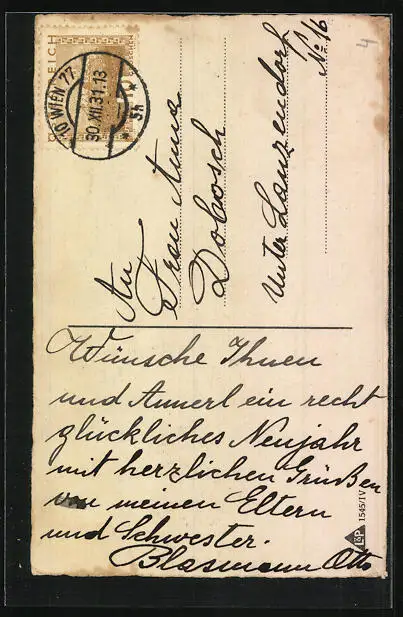 Wünsche Ihnen
und Annerl ein recht
glückliches Neujahr
mit herzlichen Grüßen
von meinen Eltern
und Schwester.
Blasmann Otto
An
Frau Anna
Dobosch
Unter Lanzendorf
No 16
10 WIEN 77
30.XII.31.13
REICH
10
1545/IV
4